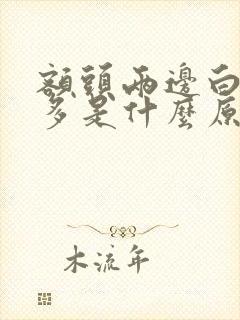 額頭兩邊白
多是什麼原
木流年